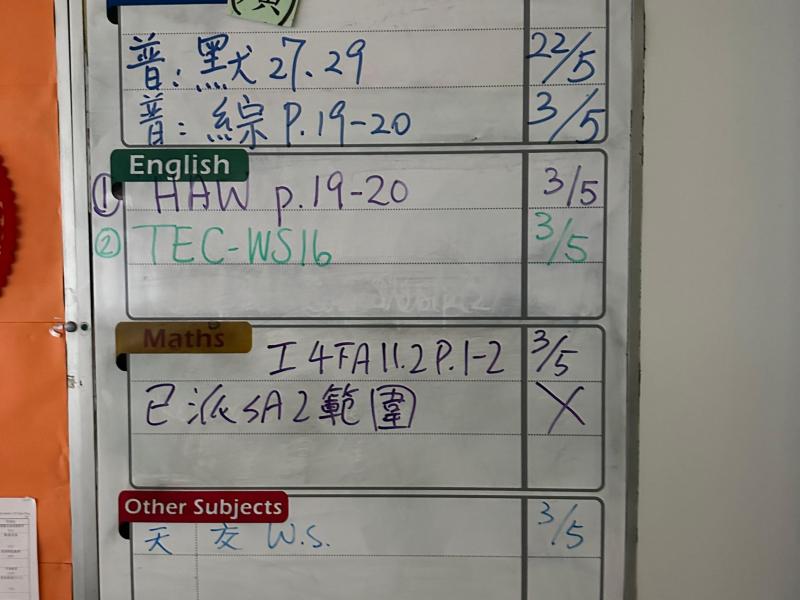 普：默27.29 22/5
普：綜P.19-20 3/5
English
① HAW p.19-20 3/5
② TEC-WS16 3/5
Maths
工4下A11.2P.1-2 3/5
已派SA2範圍 X
Other Subjects
天 友 W.S. 3/5